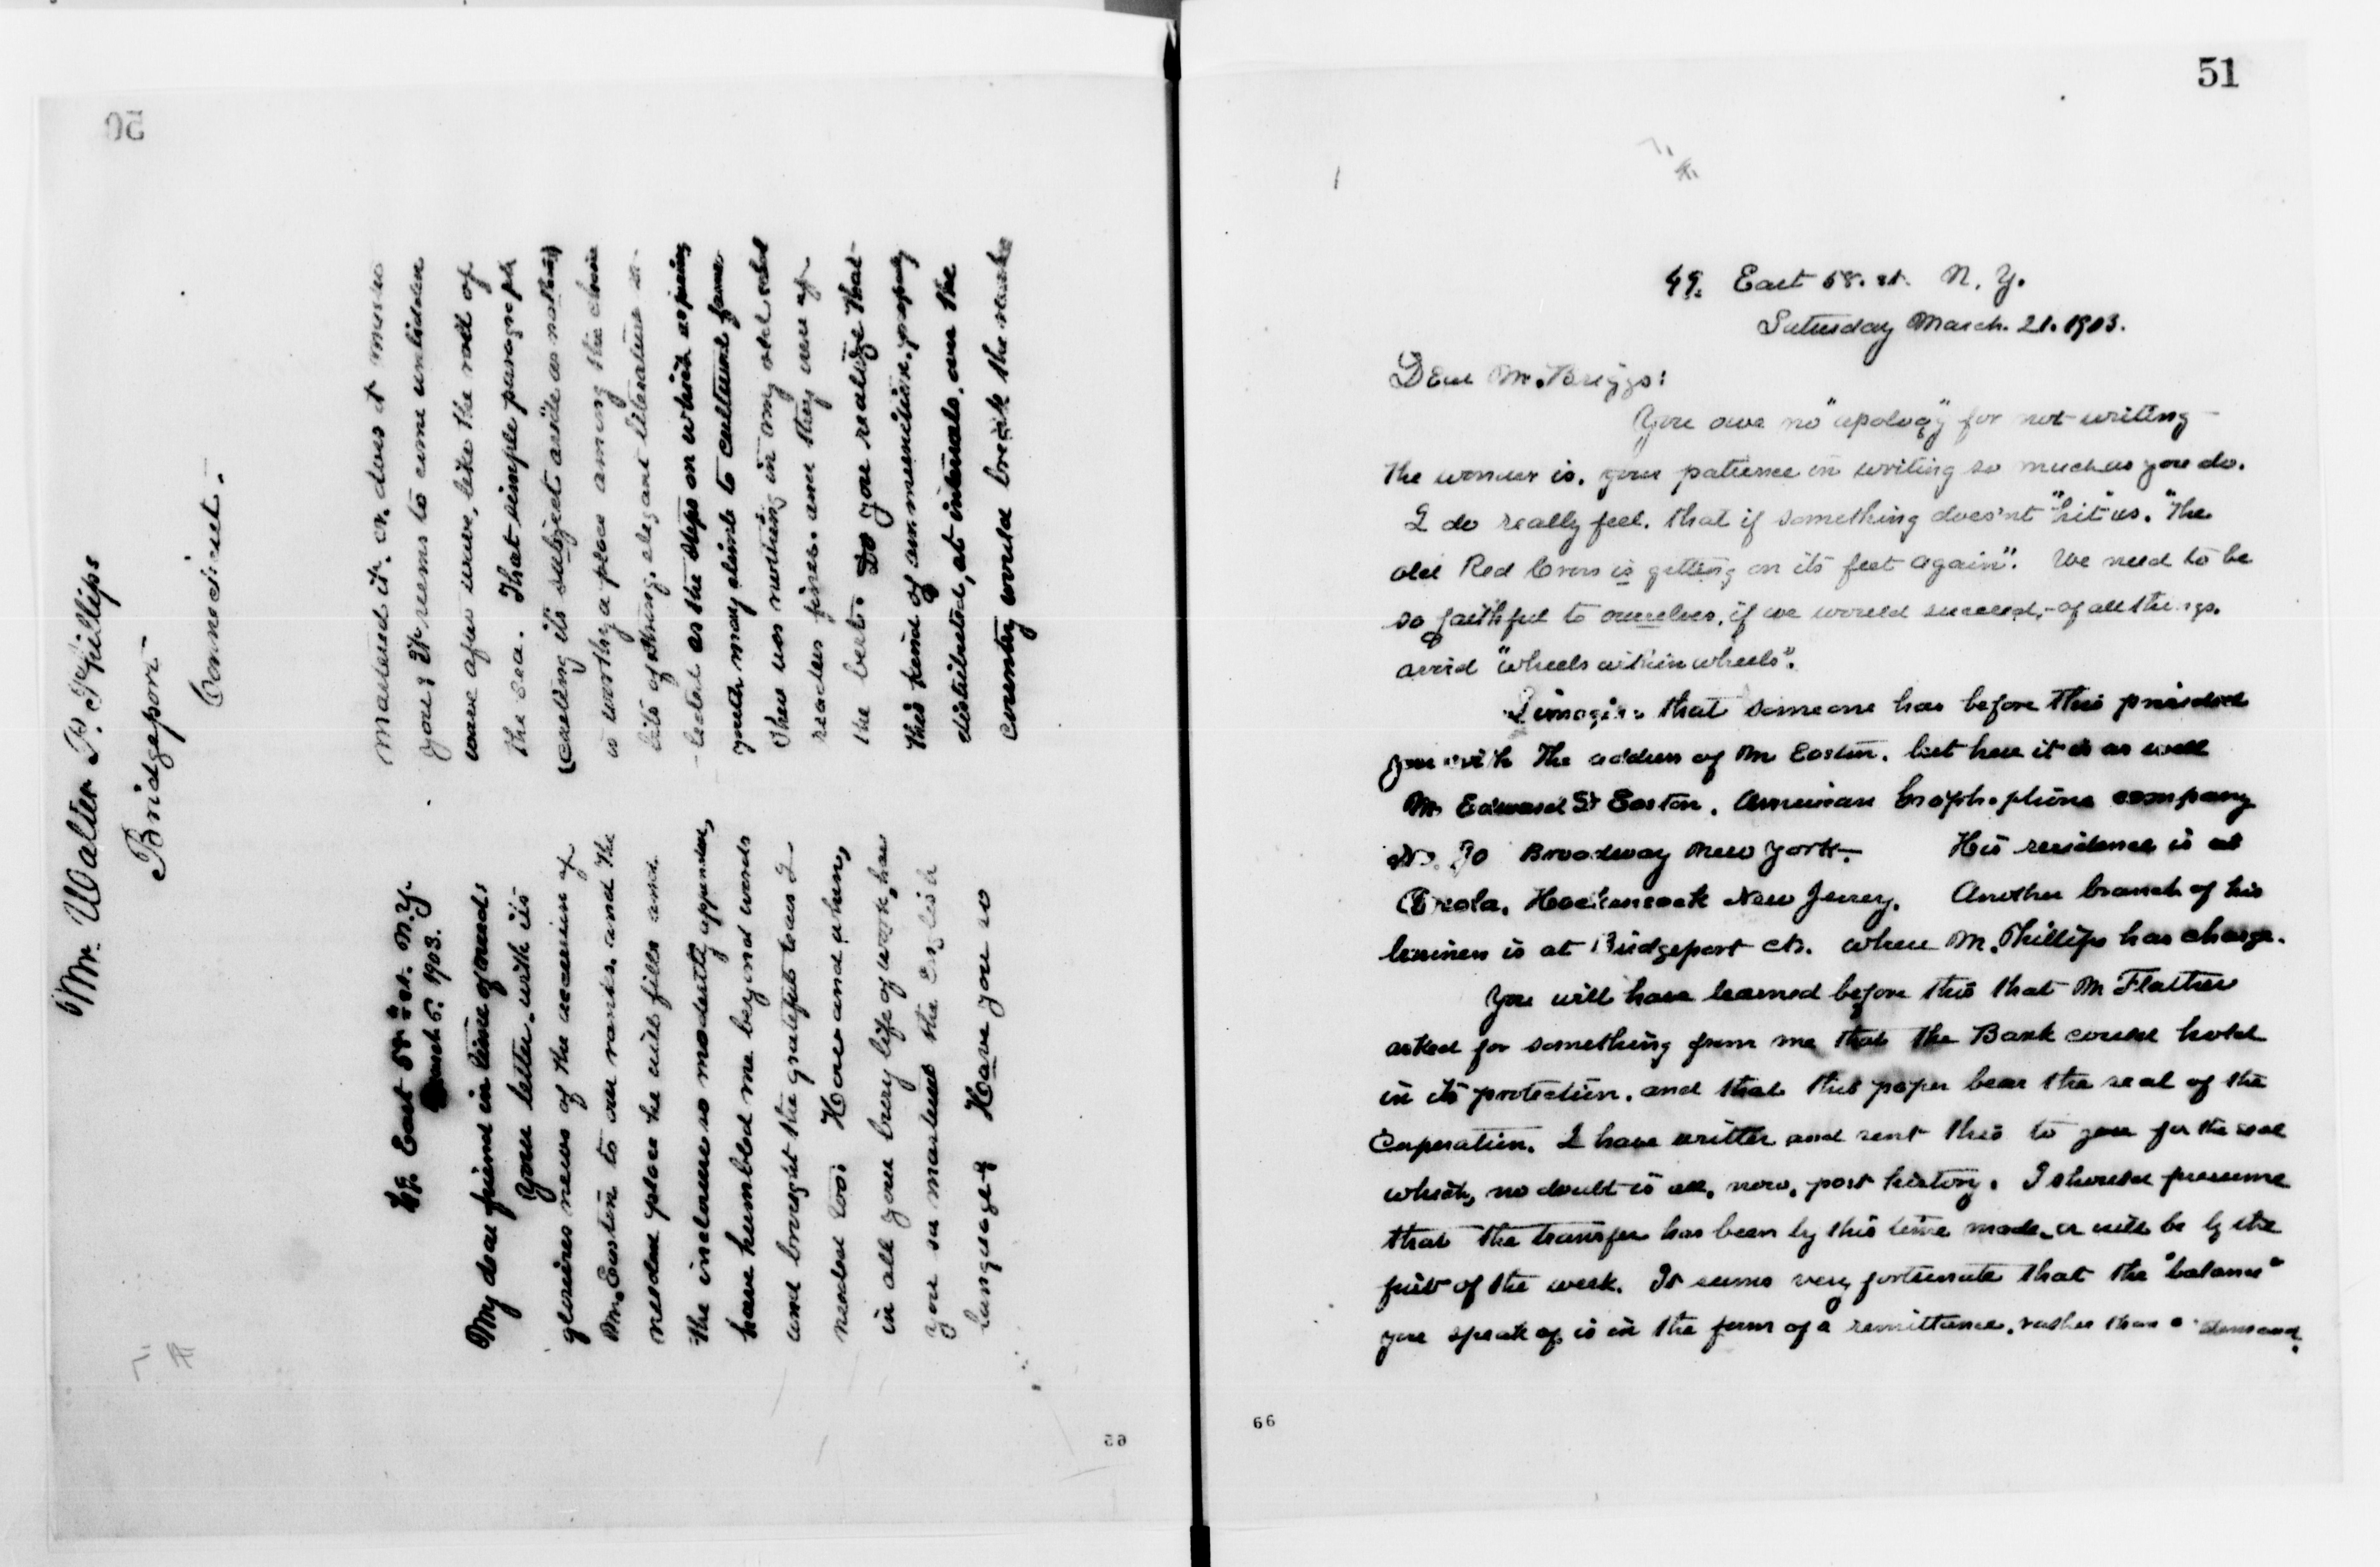 50
Mr. Walter P. Phillips
Bridgeport
Connecticut.
49. East 58th st. N.Y.
March 5. 1903.
My dear friend in time of needs
Your letter, with its
glorious news of the accession of
Mr. Easton to our ranks, and the
needed place he will fill, and
the inclosure so modestly appended,
have humbled me beyond words
and brought the grateful tears I
needed too. How and when,
in all your busy life of work, have
you so mastered the English
language? Have you so
mastered it, or, does it master
you? It seems to come unbidden
wave after wave, like the roll of
the sea. That simple paragraph
(casting its subject aside as nothing)
is worthy a place among the choice
bits of strong, elegant literature se-
lected as the steps on which aspiring
youth may climb to cultured fame
There was nothing in my old school
readers finer, and they were of
the best. Do you realize that
this kind of ammunition, properly
distributed, at intervals, over the
country would break the
65
51
49. East 58. st. N. Y.
Saturday March. 21. 1903.
Dear Mr. Briggs:
You owe no "apology" for not writing -
the wonder is, your patience in writing so much as you do.
I do really feel, that if something does'nt "hit" us, "The
old Red Cross is getting on its feet again". We need to be
so faithful to ourselves, if we would succeed, - of all things,
avoid "wheels within wheels".
I imagine that someone has before this provided
you with the address of Mr Easton, but here it is as well
Mr. Edward D Easton, American Graphophone company
No. 90 Broadway New York. His residence is at
Arcola, Hackensack New Jersey. Another branch of his
business is at Bridgeport Ct. where Mr. Phillips has charge.
You will have learned before this that Mr Flather
asked for something from me that the Bank could hold
in its protection, and that this paper bear the seal of the
Corporation. I have written and sent this to you for the seal
which, no doubt is all, now, past history. I should presume
that the transfer has been by this time made, or will be by the
first of the week. It seems very fortunate that the "balance"
you speak of, is in the form of a remittance, rather than a demand.
66